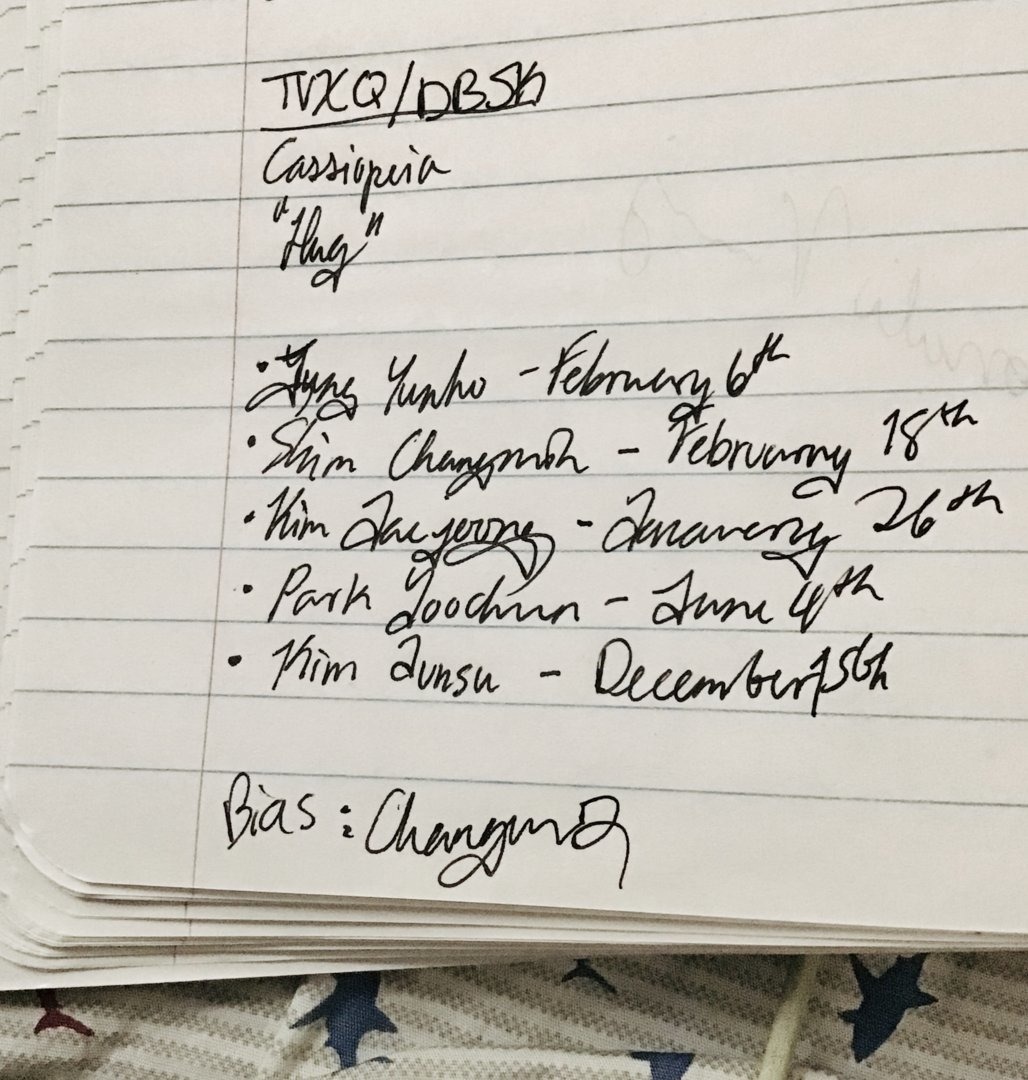 TVXQ/DBSK
Cassiopeia
"Hug"
• Jung Yunho - February 6th
• Shim Changmin - February 18th
• Kim Jaejoong - January 26th
• Park Yoochun - June 4th
• Kim Junsu - December 15th
Bias: Changmin